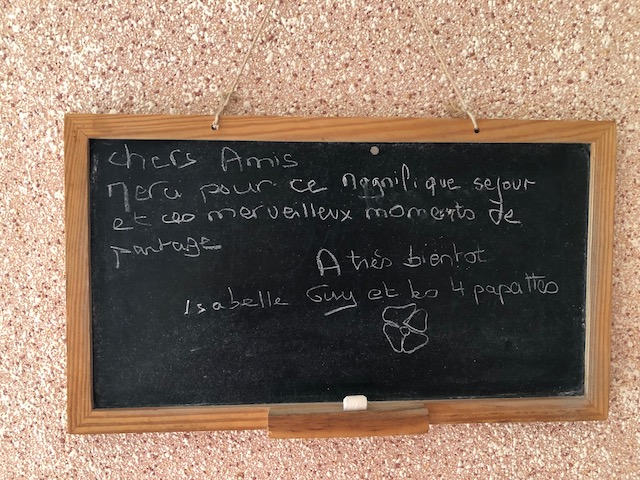 chers Amis
Merci pour ce magnifique sejour
et ces merveilleux moments de
partage
A très bientot
Isabelle Guy et les 4 papattes